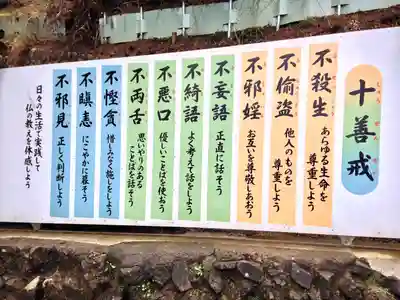 十善戒
じゅうぜんかい
不殺生
あらゆる生命を
尊重しよう
不偸盗
他人のものを
尊重しよう
不邪婬
お互いを尊敬しあおう
不妄語
正直に話そう
不綺語
よく考えて話をしよう
不悪口
優しいことばを使おう
不両舌
思いやりのある
ことばを話そう
不慳貪
惜しみなく施しをしよう
不瞋恚
にこやかに暮そう
不邪見
正しく判断しよう
日々の生活で実践して
仏の教えを体感しよう